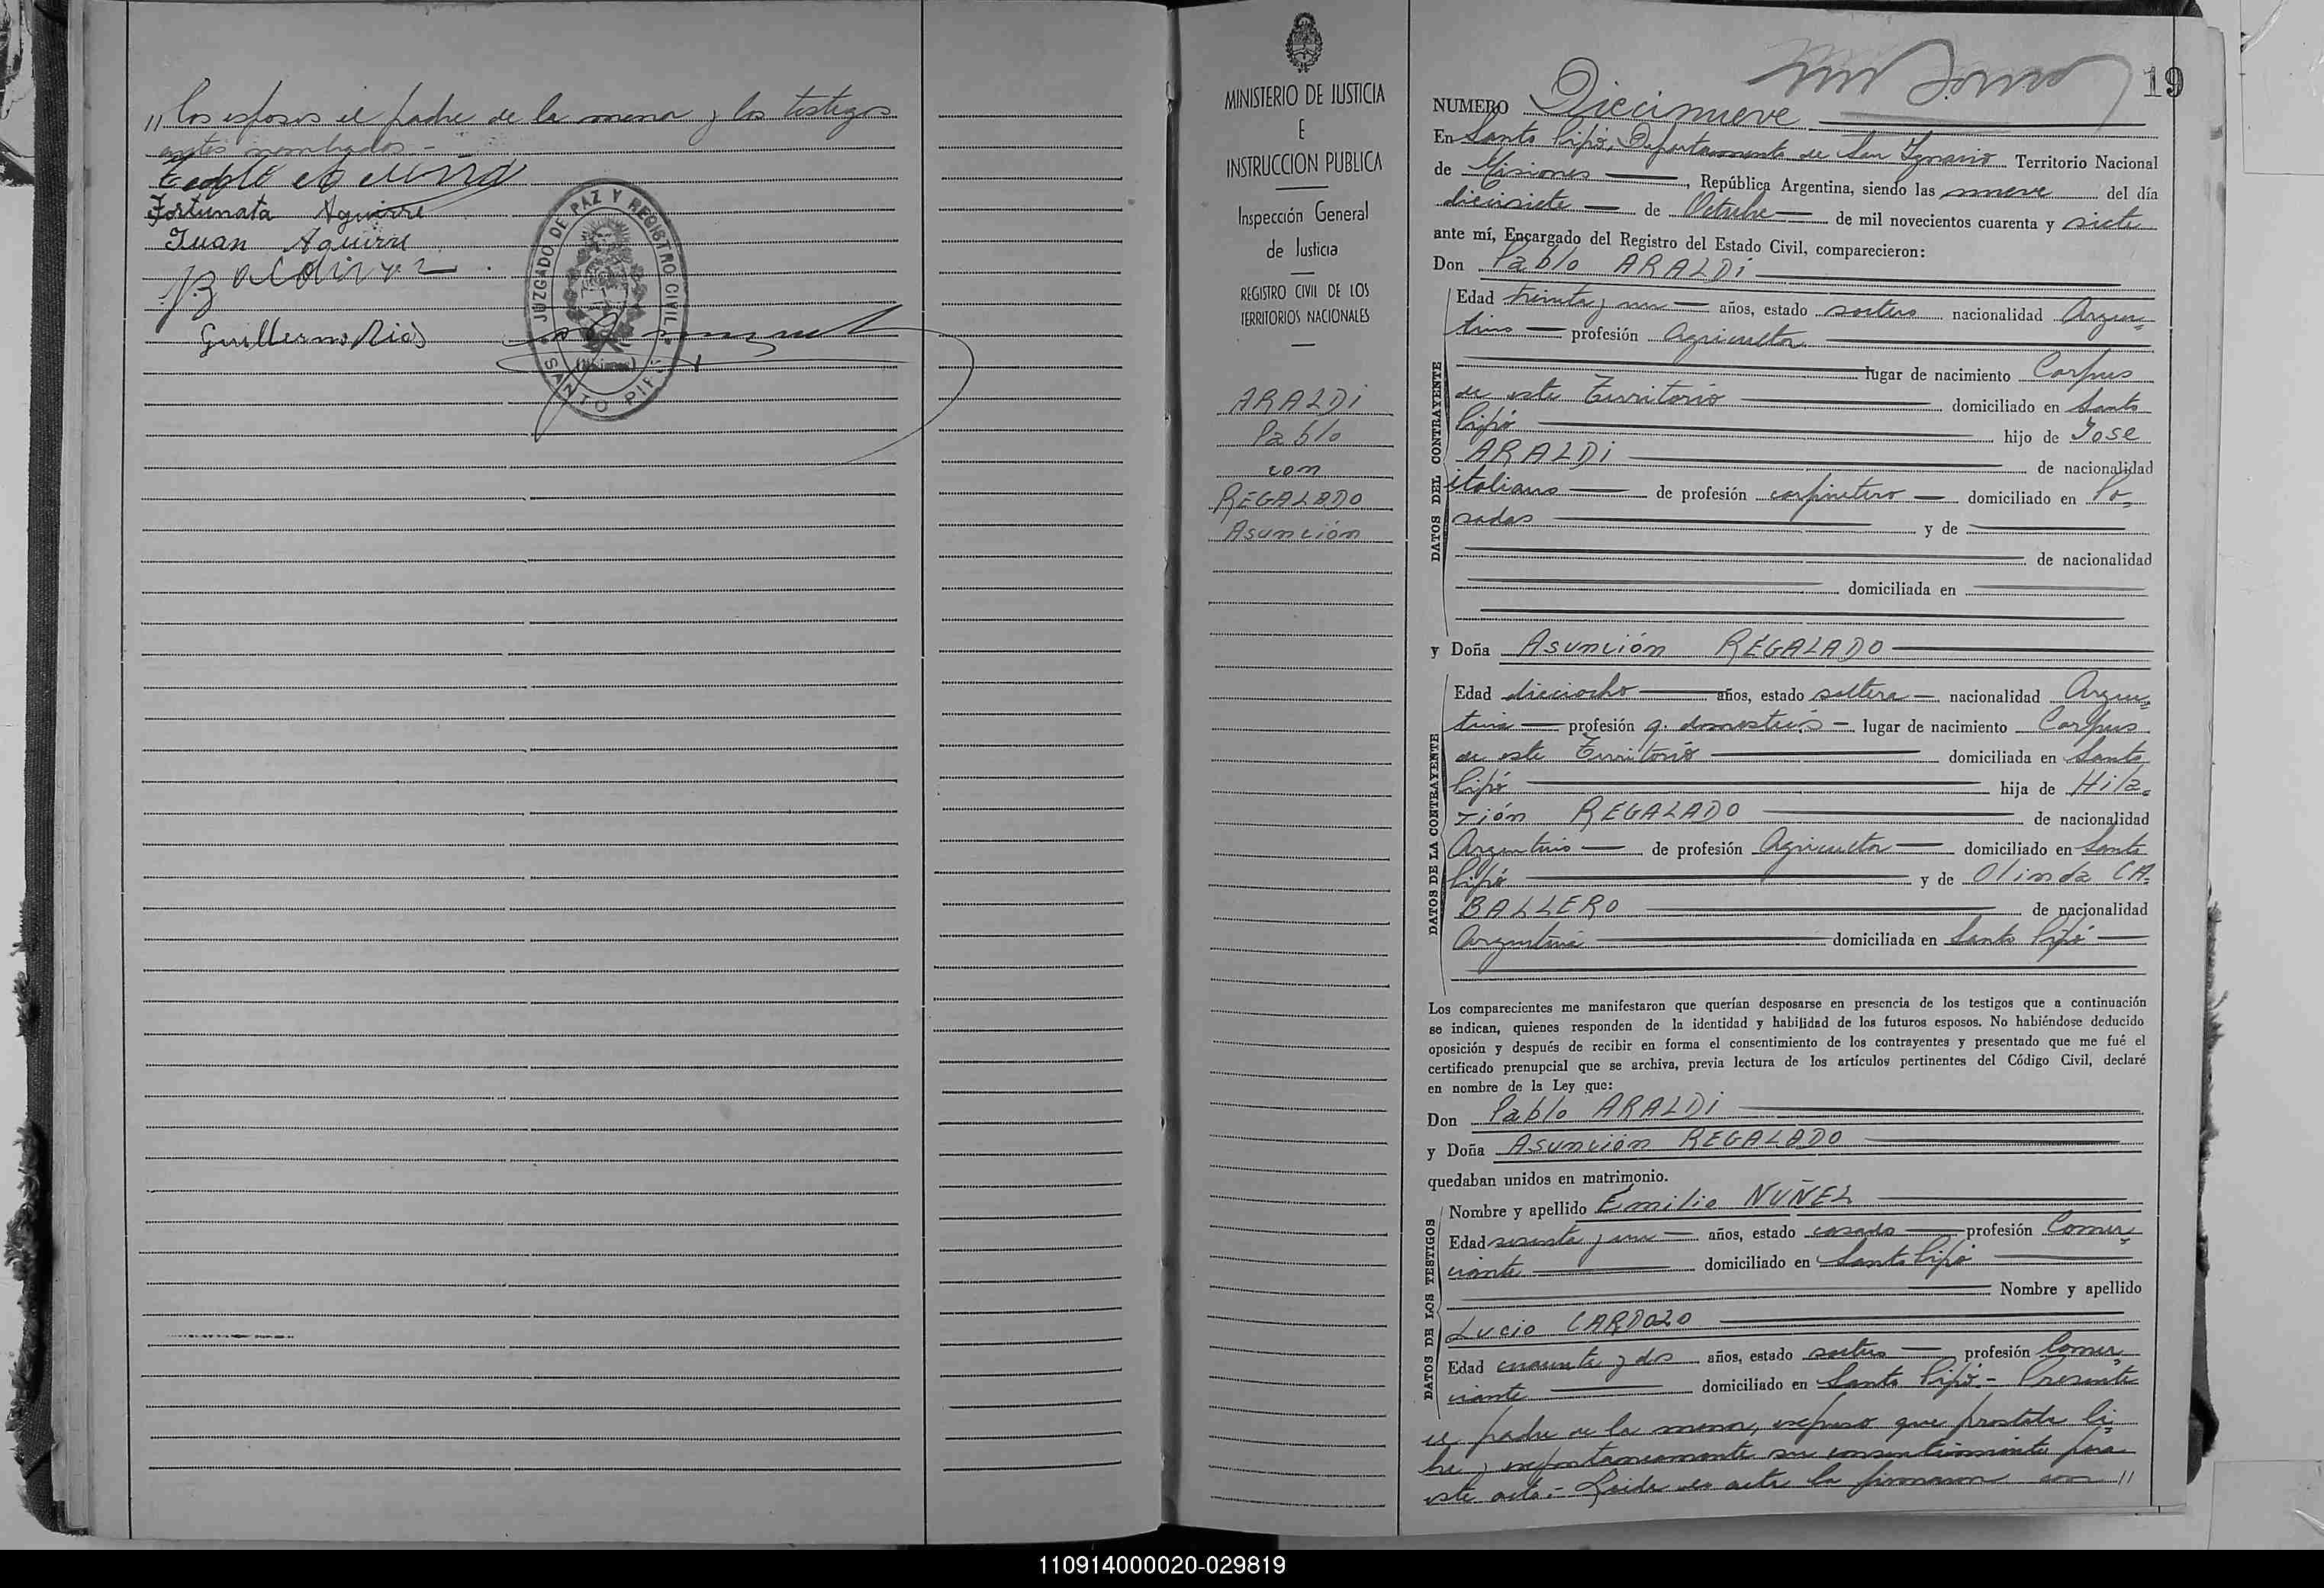 // los esposos el padre de la menor y los testigos
antes nombrados.-
Fortunata Aguirre
Juan Aguirre
Guillermo Rios
JUZGADO DE PAZ Y REGISTRO CIVIL
(Misiones)
SANTO PIPÓ
MINISTERIO DE JUSTICIA
E
INSTRUCCION PUBLICA
Inspección General
de Justicia
REGISTRO CIVIL DE LOS
TERRITORIOS NACIONALES
ARALDI
Pablo
con
REGALADO
Asunción
19
NUMERO Diecinueve
En Santo Pipó, Departamento de San Ignacio Territorio Nacional
de Misiones, República Argentina, siendo las nueve del día
diecisiete de Octubre de mil novecientos cuarenta y siete
ante mí, Encargado del Registro del Estado Civil, comparecieron:
Don Pablo ARALDI
DATOS DEL CONTRAYENTE
Edad treinta y un años, estado soltero nacionalidad Argen=
tino profesión Agricultor
lugar de nacimiento Corpus
de este Territorio domiciliado en Santo
Pipó hijo de Jose
ARALDI de nacionalidad
italiano de profesión carpintero domiciliado en Po=
sadas y de
de nacionalidad
domiciliada en
y Doña Asunción REGALADO
DATOS DE LA CONTRAYENTE
Edad dieciocho años, estado soltera nacionalidad Argen=
tina profesión q. domesticos lugar de nacimiento Corpus
de este Territorio domiciliada en Santo
Pipó hija de Hila=
rión REGALADO de nacionalidad
Argentino de profesión Agricultor domiciliado en Santo
Pipó y de Olinda CA=
BALLERO de nacionalidad
Argentina domiciliada en Santo Pipó
Los comparecientes me manifestaron que querían desposarse en presencia de los testigos que a continuación
se indican, quienes responden de la identidad y habilidad de los futuros esposos. No habiéndose deducido
oposición y después de recibir en forma el consentimiento de los contrayentes y presentado que me fué el
certificado prenupcial que se archiva, previa lectura de los artículos pertinentes del Código Civil, declaré
en nombre de la Ley que:
Don Pablo ARALDI
y Doña Asunción REGALADO
quedaban unidos en matrimonio.
DATOS DE LOS TESTIGOS
Nombre y apellido Emilio NUÑEZ
Edad sesenta y un años, estado casado profesión Comer=
ciante domiciliado en Santo Pipó
Nombre y apellido
Lucio CARDOZO
Edad cuarenta y dos años, estado soltero profesión Comer=
ciante domiciliado en Santo Pipó.- Presente
el padre de la menor, expuso que prestaba li=
bre y espontaneamente su consentimiento para
este acto.- Leida el acta la firmaron con //
110914000020-029819